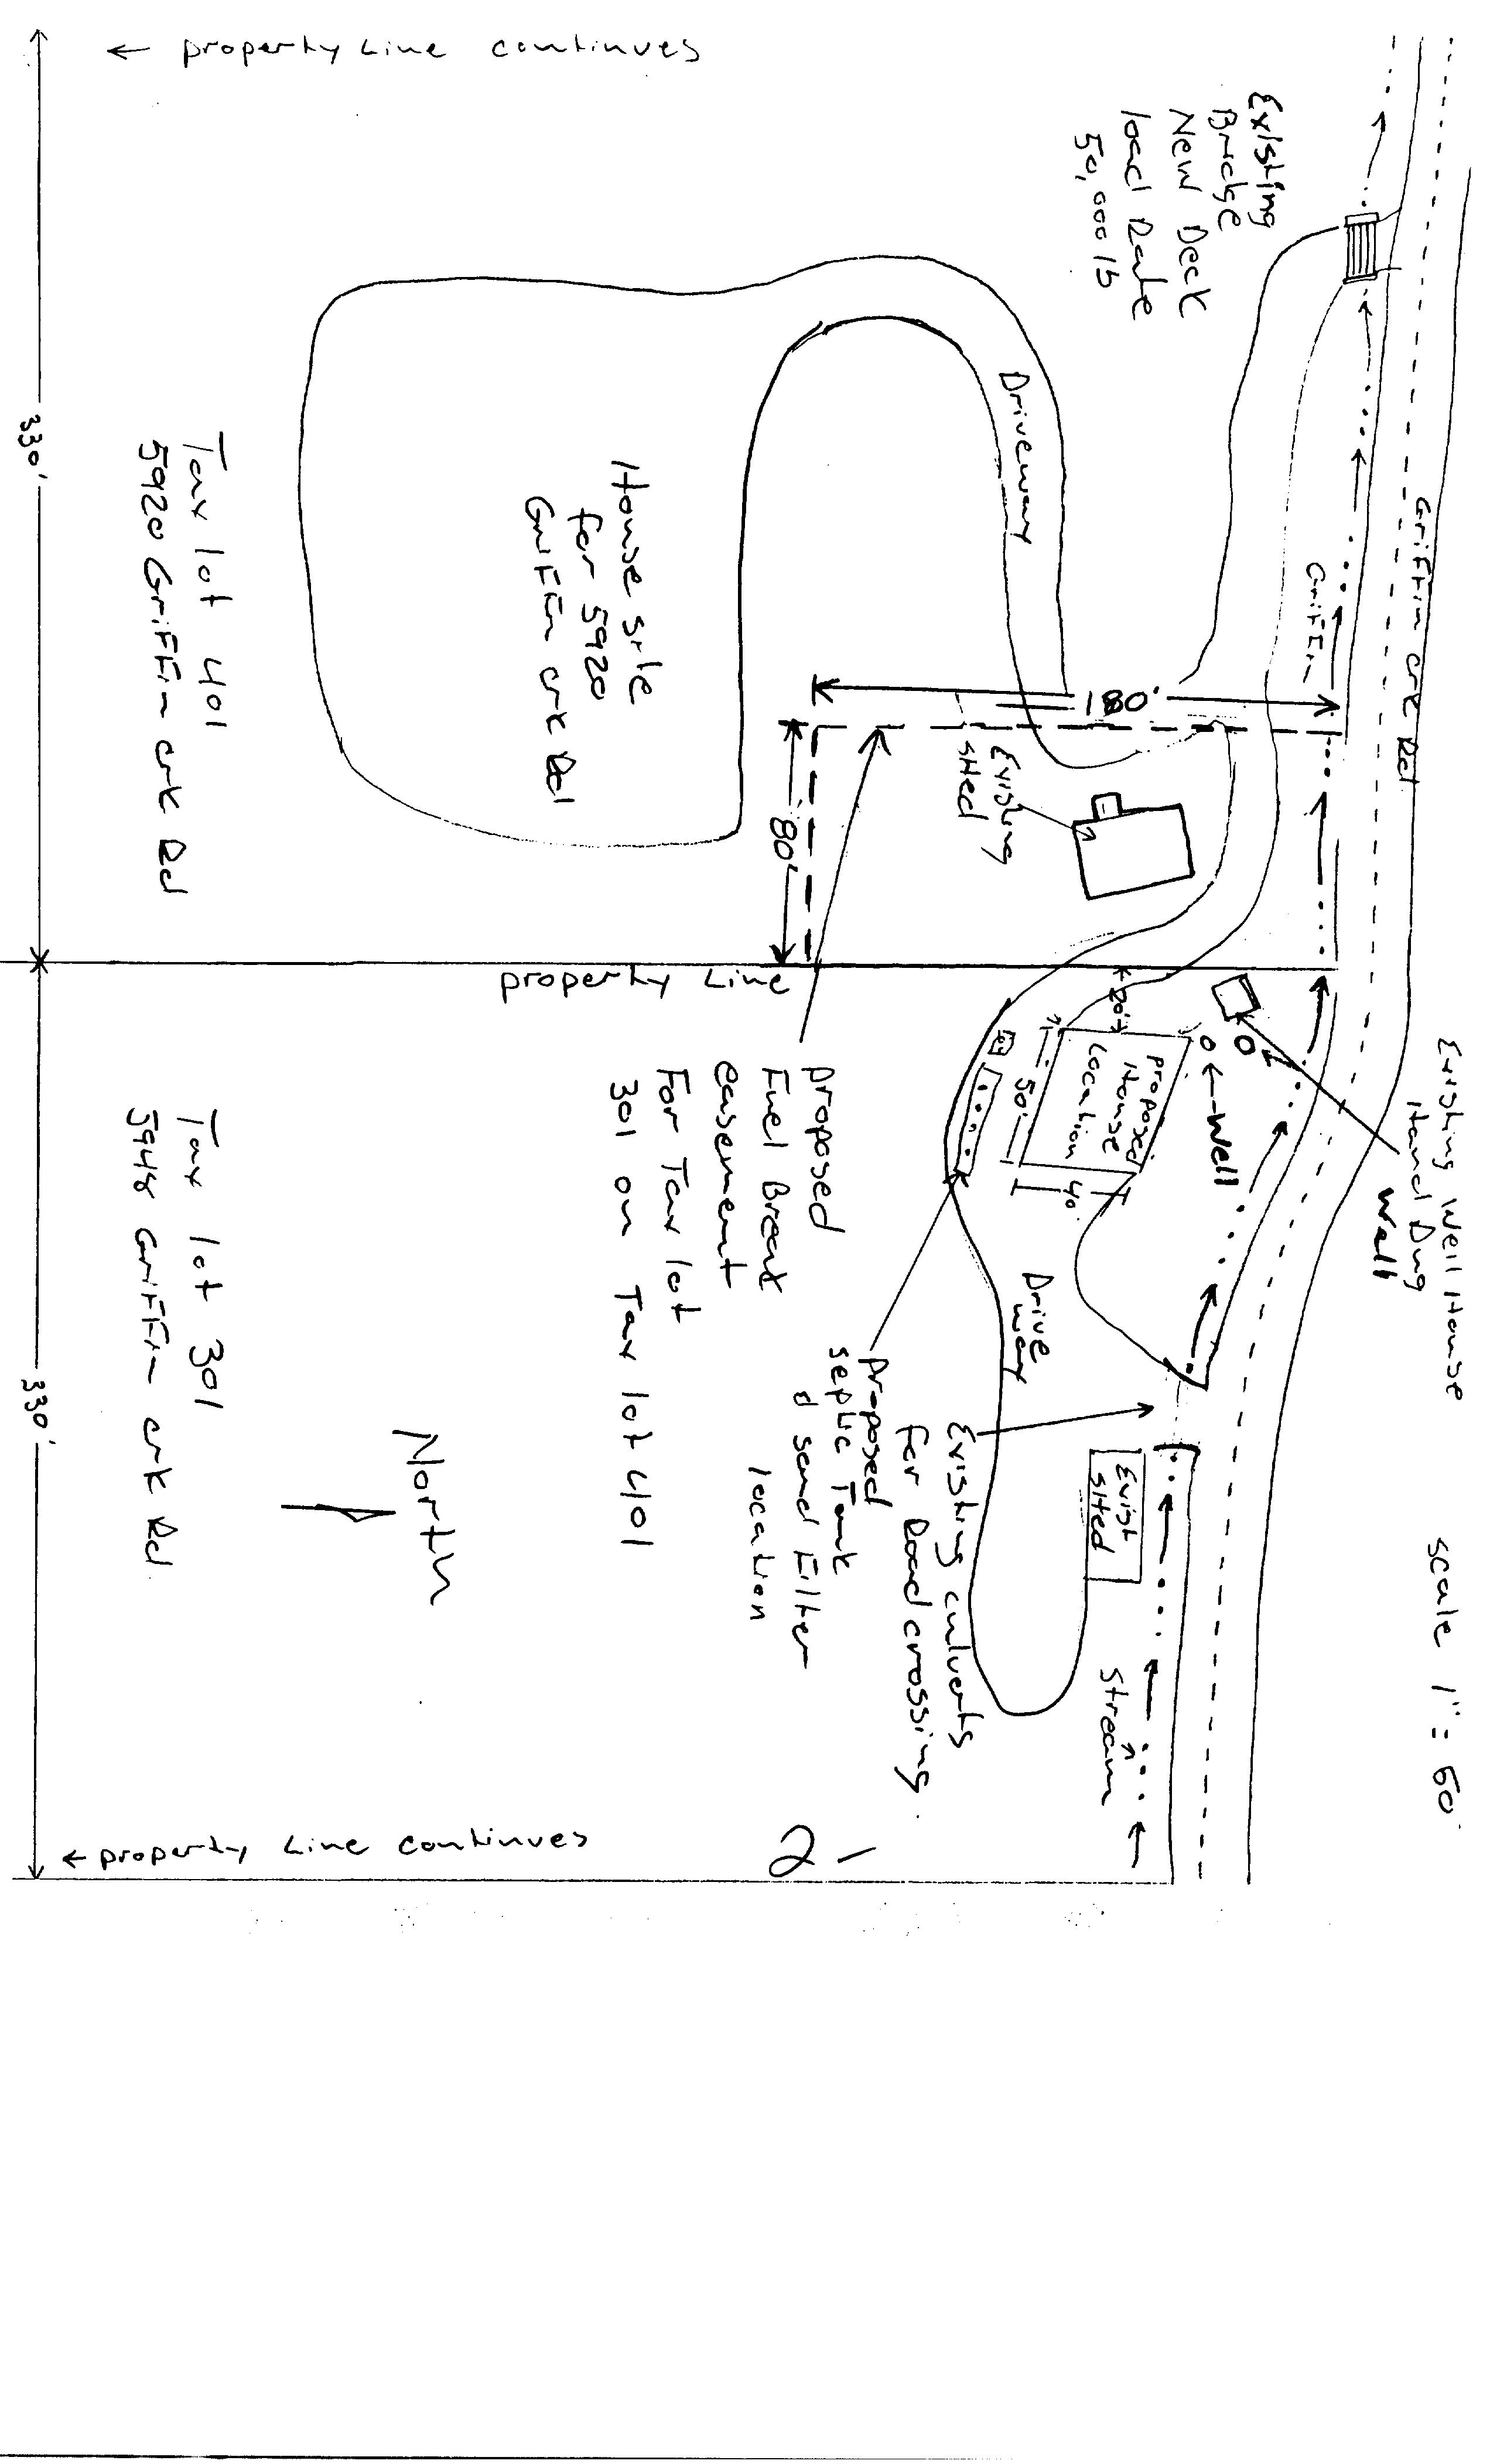 ← property Line continues
Existing
Bridge
New Deck
load Rate
50,000 lb
330'
Tax lot 401
5920 GriFFin crk Rd
House site
for 5920
GriFFin crk Rd
Driveway
GriFFin
Griffin crk Rd
180'
80'
Existing
sHed
property Line
20'
proposed
House
Location
50'
40'
← Well
Existing Well House
Hand Dug
Well
scale 1" = 60'
proposed
Fuel Break
easement
For Tax lot
301 on Tax lot 401
Drive
way
proposed
septic Tank
& sand Filter
location
Existing culverts
for Road crossing
Exist
sHed
Stream
Tax lot 301
5948 GriFFin crk Rd
North
330'
← property Line continues
2-